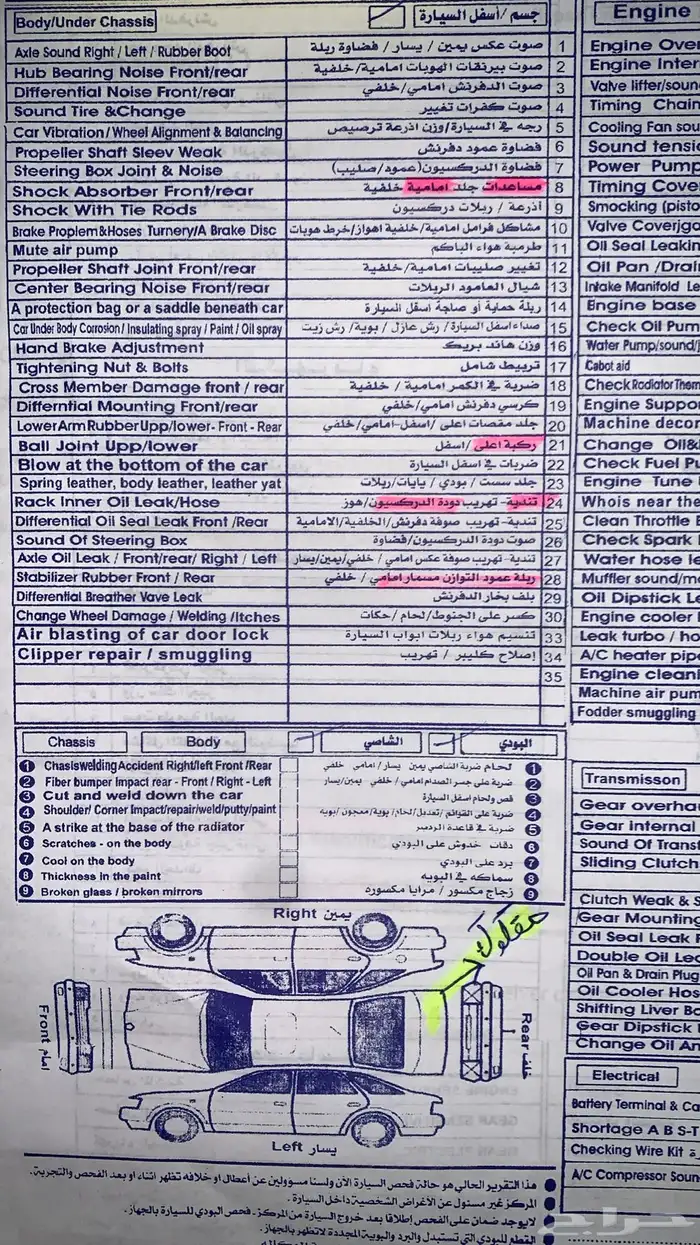 Body/Under Chassis جسم / أسفل السيارة
Axle Sound Right / Left / Rubber Boot صوت عكس يمين / يسار / فضاوة ربلة 1
Hub Bearing Noise Front/rear صوت بيرنقات الهوبات امامية/خلفية 2
Differential Noise Front/rear صوت الدفرنش امامي/خلفي 3
Sound Tire &Change صوت كفرات تغيير 4
Car Vibration/Wheel Alignment & Balancing رجه في السيارة/وزن اذرعة ترصيص 5
Propeller Shaft Sleev Weak فضاوة عمود دفرنش 6
Steering Box Joint & Noise فضاوة الدركسيون(عمود/صليب) 7
Shock Absorber Front/rear مساعدات جلد امامية خلفية 8
Shock With Tie Rods أذرعة / ربلات دركسيون 9
Brake Proplem&Hoses Turnery/A Brake Disc مشاكل فرامل امامية/خلفية اهواز/خرط هوبات 10
Mute air pump طرمبة هواء الباكم 11
Propeller Shaft Joint Front/rear تغيير صليبات امامية/خلفية 12
Center Bearing Noise Front/rear شيال العامود الربلات 13
A protection bag or a saddle beneath car ربلة حماية أو صاجة اسفل السيارة 14
Car Under Body Corrosion/Insulating spray/Paint/Oil spray صداء اسفل السيارة/ رش عازل / بوية/ رش زيت 15
Hand Brake Adjustment وزن هاند بريك 16
Tightening Nut & Bolts تربيط شامل 17
Cross Member Damage front / rear ضربة في الكمر امامية / خلفية 18
Differntial Mounting Front/rear كرسي دفرنش امامي/خلفي 19
Lower Arm Rubber Upp/lower- Front - Rear جلد مقصات اعلى /اسفل-امامي/خلفي 20
Ball Joint Upp/lower ركبة اعلى /اسفل 21
Blow at the bottom of the car ضربات في اسفل السيارة 22
Spring leather, body leather, leather yat جلد سست / بودي / يايات/ربلات 23
Rack Inner Oil Leak/Hose تندية- تهريب دودة الدركسيون/هوز 24
Differential Oil Seal Leak Front /Rear تندية- تهريب صوفة دفرنش/الخلفية/الامامية 25
Sound Of Steering Box صوت دودة الدركسيون/فضاوة 26
Axle Oil Leak / Front/rear/ Right / Left تندية-تهريب صوفة عكس امامي / خلفي/يمين/يسار 27
Stabilizer Rubber Front / Rear ربلة عمود التوازن مسمار امامي / خلفي 28
Differential Breather Vave Leak بلف بخار الدفرنش 29
Change Wheel Damage / Welding /Itches كسر على الجنوط/لحام/حكات 30
Air blasting of car door lock تنسيم هواء ربلات ابواب السيارة 33
Clipper repair / smuggling إصلاح كليبر / تهريب 34
35
Chassis Body الشاصي البودي
1 Chasiswelding Accident Right/left Front/Rear لحام ضربة الشاصي يمين يسار/ امامي خلفي 1
2 Fiber bumper Impact rear - Front / Right - Left ضربة على جسر الصدام امامي/ خلفي يمين/يسار 2
3 Cut and weld down the car قص ولحام اسفل السيارة 3
4 Shoulder/ Corner Impact/repair/weld/putty/paint ضربة على القوائم /تعديل/لحام/بوية/معجون/بويه 4
5 A strike at the base of the radiator ضربة في قاعدة الرديتر 5
6 Scratches - on the body دقات خدوش على البودي 6
7 Cool on the body برد على البودي 7
8 Thickness in the paint سماكه في البويه 8
9 Broken glass / broken mirrors زجاج مكسور / مرايا مكسوره 9
Right يمين
Front امام
Rear خلف
Left يسار
هذا التقرير الحالي هو حالة فحص السيارة الآن ولسنا مسؤولين عن أعطال او خلافه تظهر اثناء او بعد الفحص والتجربة.
المركز غير مسئول عن الأغراض الشخصية داخل السيارة.
لايوجد ضمان على الفحص إطلاقا بعد خروج السيارة من المركز. فحص البودي للسيارة بالجهاز.
القطع للبودي التي تستبدل والبرد والبوية المجددة لاتظهر بالجهاز.
Engine
Engine Over
Engine Inter
Valve lifter/soun
Timing Chain
Cooling Fan sou
Sound tensio
Power Pump
Timing Cove
Smocking (pisto
Valve Coverjga
Oil Seal Leakin
Oil Pan /Drain
Intake Manifold Le
Engine base
Check Oil Pum
Water Pump/sound/j
Cabot aid
Check Rodiator Therm
Engine Suppo
Machine decor
Change Oil&
Check Fuel P
Engine Tune
Whois near the
Clean Throttle B
Check Spark
Water hose le
Muffler sound/m
Oil Dipstick L
Engine cooler
Leak turbo / ho
A/C heater pipe
Engine cleani
Machine air pum
Fodder smuggling
Transmisson
Gear overha
Gear internal
Sound Of Trans
Sliding Clutch
Clutch Weak & S
Gear Mounting
Oil Seal Leak
Double Oil Lea
Oil Pan & Drain Plug
Oil Cooler Hos
Shifting Liver Bo
Gear Dipstick
Change Oil An
Electrical
Battery Terminal & Ca
Shortage A B S-T
Checking Wire Kit
A/C Compressor Soun
حراج